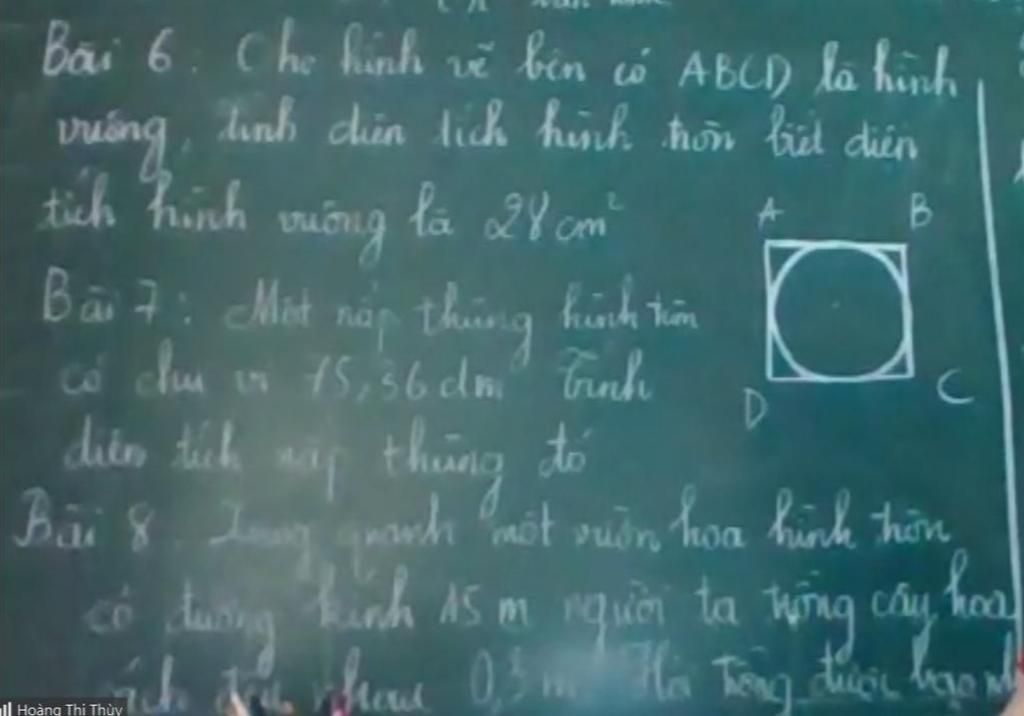 Bài 6. Cho hình vẽ bên có ABCD là hình
vuông, tính diện tích hình tròn biết diện
tích hình vuông là 28 cm²
A B
D C
Bài 7: Một nắp thùng hình tròn
có chu vi 15,36 dm Tính
diện tích nắp thùng đó
Bài 8 quanh một vườn hoa hình tròn
có đường kính 15 m người ta trồng cây hoa
cách đều nhau Hỏi trồng được bao
Hoàng Thị Thùy